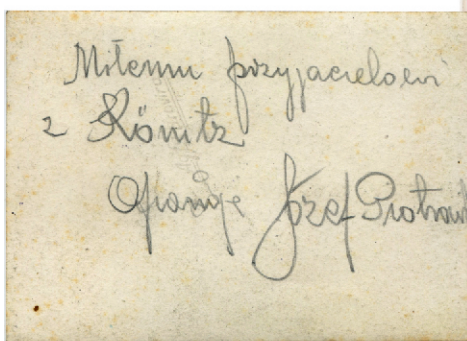 Miłemu przyjacielowi
z Könitz
Ofiaruje Józef Piotrow